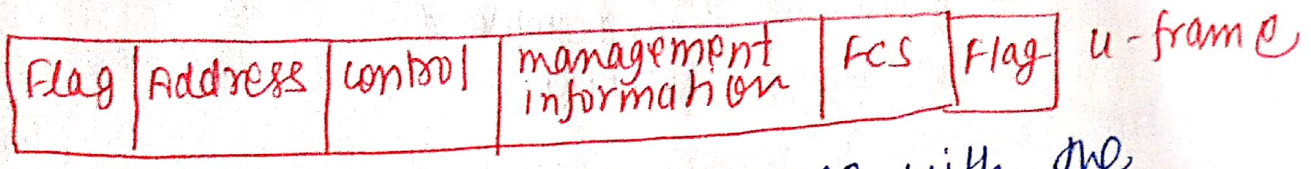 Flag Address control management information FCS Flag u-frame
with the